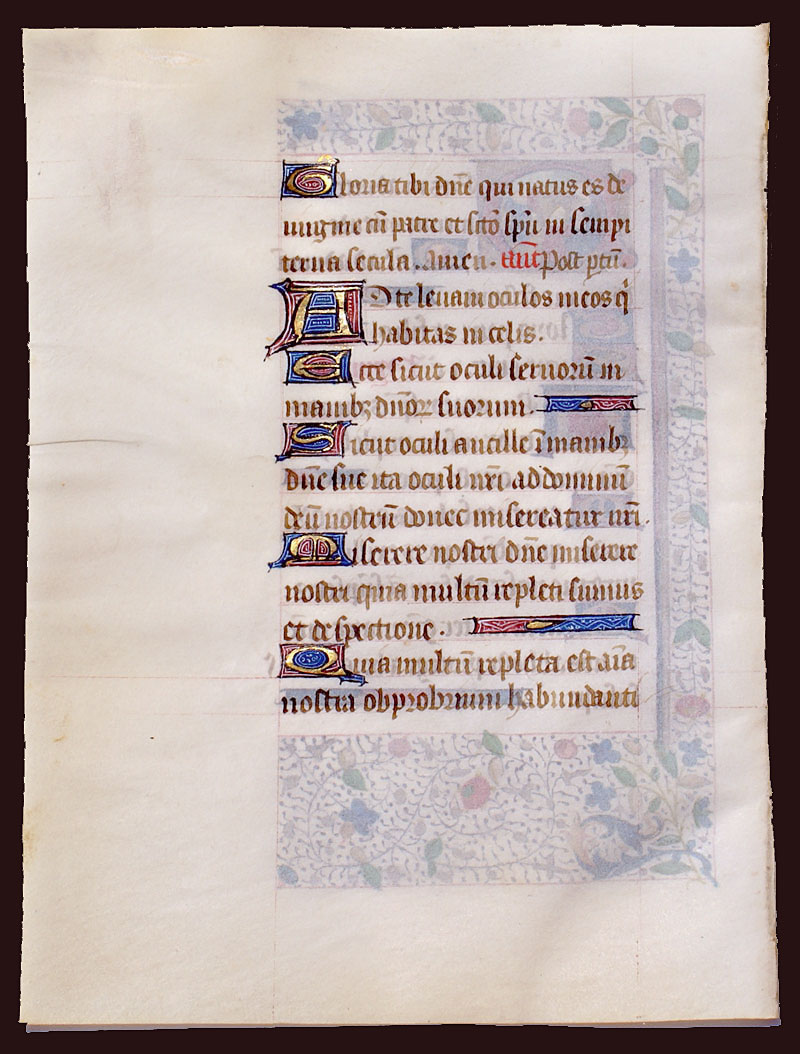 Gloria tibi dñe qui natus es de
uirgine cũ patre et scõ spũ in sempi
terna secula. Amen. añt Post ptũ.
Ad te leuaui oculos meos q̇
habitas in celis.
Ecce sicut oculi seruorũ in
manibꝫ dñoꝝ suorum.
Sicut oculi ancille ĩ manibꝫ
dñe sue ita oculi nr̃i ad dominũ
deũ nostrũ donec misereatur nr̃i.
Miserere nostri dñe miserere
nostri quia multũ repleti sumus
et despectione.
Quia multũ repleta est aĩa
nostra obprobrium habundanti